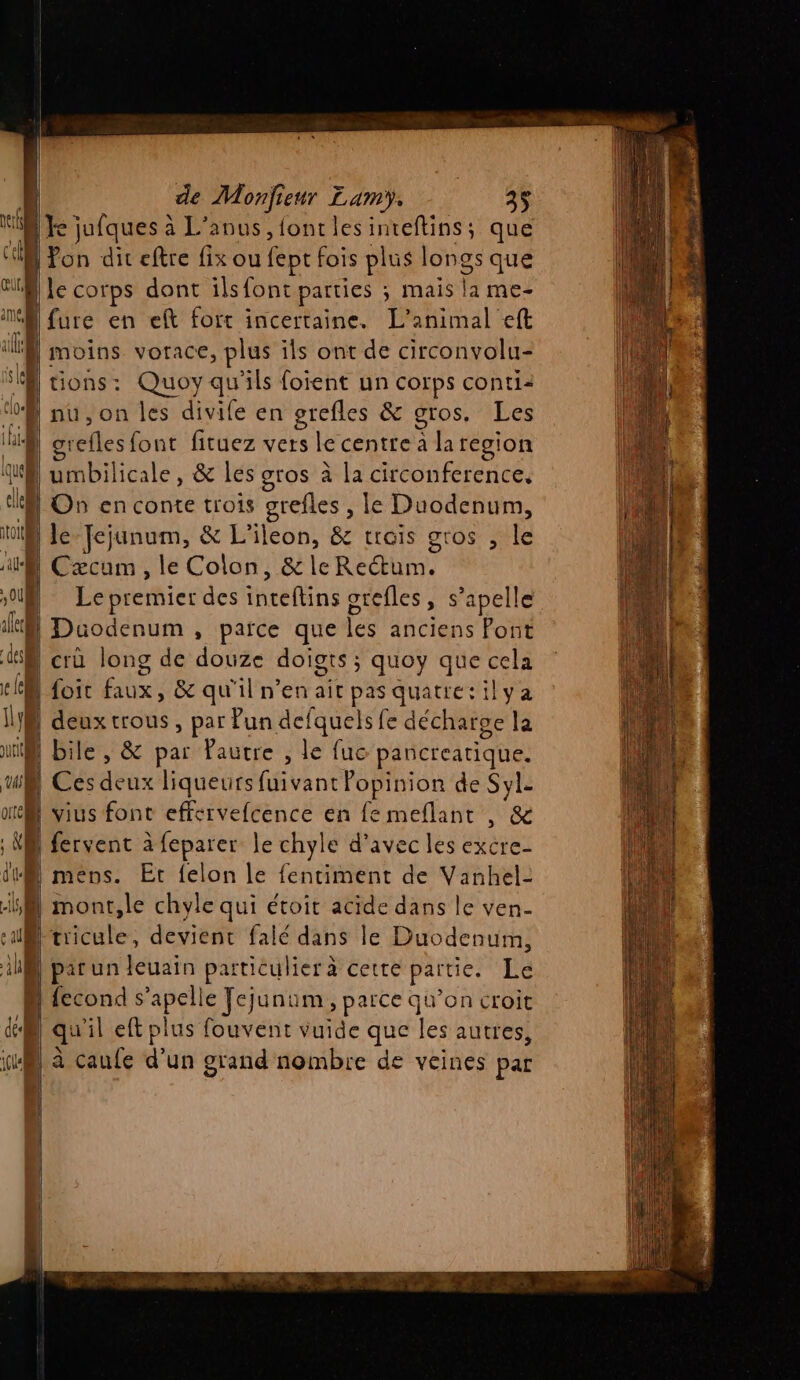 de Monſieur Lamy. 35
le juſques à L'anus, ſont les inteſtins; que
l'on dit eſtre ſix ou ſept fois plus longs que
le corps dont ils ſont parties ; mais la me-
ſure en eſt fort incertaine. L'animal eſt
moins vorace, plus ils ont de circonvolu-
tions: Quoy qu'ils ſoient un corps conti-
nu, on les diviſe en greſles & gros. Les
greſles ſont ſituez vers le centre à la region
umbilicale, & les gros à la circonference.
On en conte trois greſles, le Duodenum,
le Jejunum, & L'ileon, & trois gros , le
Cæcum, le Colon, & le Rectum.
Le premier des inteſtins greſles, s'apelle
Duodenum , parce que les anciens l'ont
crû long de douze doigts; quoy que cela
ſoit faux, & qu'il n'en ait pas quatre: il y a
deux trous, par l'un deſquels ſe décharge la
bile, & par l'autre , le ſuc pancreatique.
Ces deux liqueurs ſuivant l'opinion de Syl-
vius font efferveſcence en ſe meſlant , &
ſervent à ſeparer le chyle d'avec les excre-
mens. Et ſelon le ſentiment de Vanhel-
mont, le chyle qui étoit acide dans le ven-
tricule, devient ſalé dans le Duodenum,
par un leuain particulier à cette partie. Le
ſecond s'apelle Jejunum, parce qu'on croit
qu'il eſt plus ſouvent vuide que les autres,
à cauſe d'un grand nombre de veines par